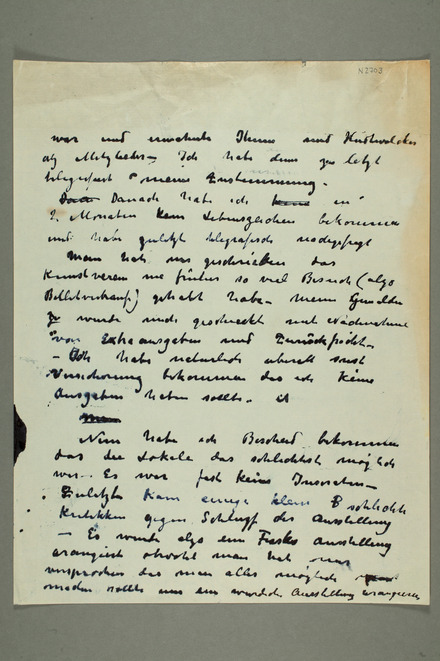 N 2703
war und Ihnen und Hudtwalcker
als Mitglieder – Ich habe dann zu letzt
telegrafiert meine Zustimmung.
Danach habe ich in
2 Monaten kein Lebenszeichen bekommen
und habe zuletzt telegrafisch nachgefragt
Man hat mir geschrieben das
Kunstverein nie früher so viel Besuch (also
Billetverkauf) gehabt habe – meine Gemälde
wurde mich geschickt mit Nachnahme
von Extraausgaben und Zurückfracht –
– Ich habe naturlich uberall sonst
Versicherung bekommen das ich keine
Ausgaben haben sollte.
Nun habe ich Bescheid bekommen
das die Lokale das schlechtest möglich
war – Es war fast keine Inseraten –
Zuletzt kam einige klein schlechte
Kritikken gegen Schlupf der Ausstellung
– Es wurde also ein Fasks Ausstellung
arangiert obwohl man hat mir
versprochen das man alles möglich
machen sollte um ein wurdich Ausstellung arangieren